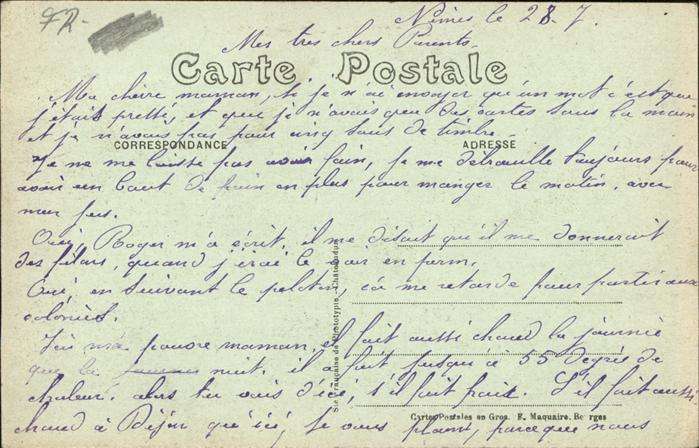 FR
Nîmes le 28-7.
Mes tres chers Parents
Carte Postale
Ma chere maman, si je n'ai envoyer qu'un mot c'est que
j'étais pressé, et que je n'avais que des cartes sous la main
et je n'avais pas pour cinq sous de timbre.
CORRESPONDANCE
ADRESSE
Je ne me laisse pas avoir faim, je me débrouille toujours pour
avoir un bout de pain en plus pour manger le matin, avec
mon jus.
Oui, Roger m'a écrit, il me disait qu'il me donnerait
des filons, quand j'irai le voir en perm.
Oui, en suivant le peloton, ça me retarde pour partir aux
colonies.
Ici ma pauvre maman, il fait aussi chaud la journée
que la nuit, il a fait jusqu'à 55 degrés de
chaleur. alors tu vois d'ici, s'il fait frais. S'il fait aussi
chaud à Dijon qu'ici, je vous plains, parce que nous
Cartes Postales en Gros. F. Maquaire. Bourges